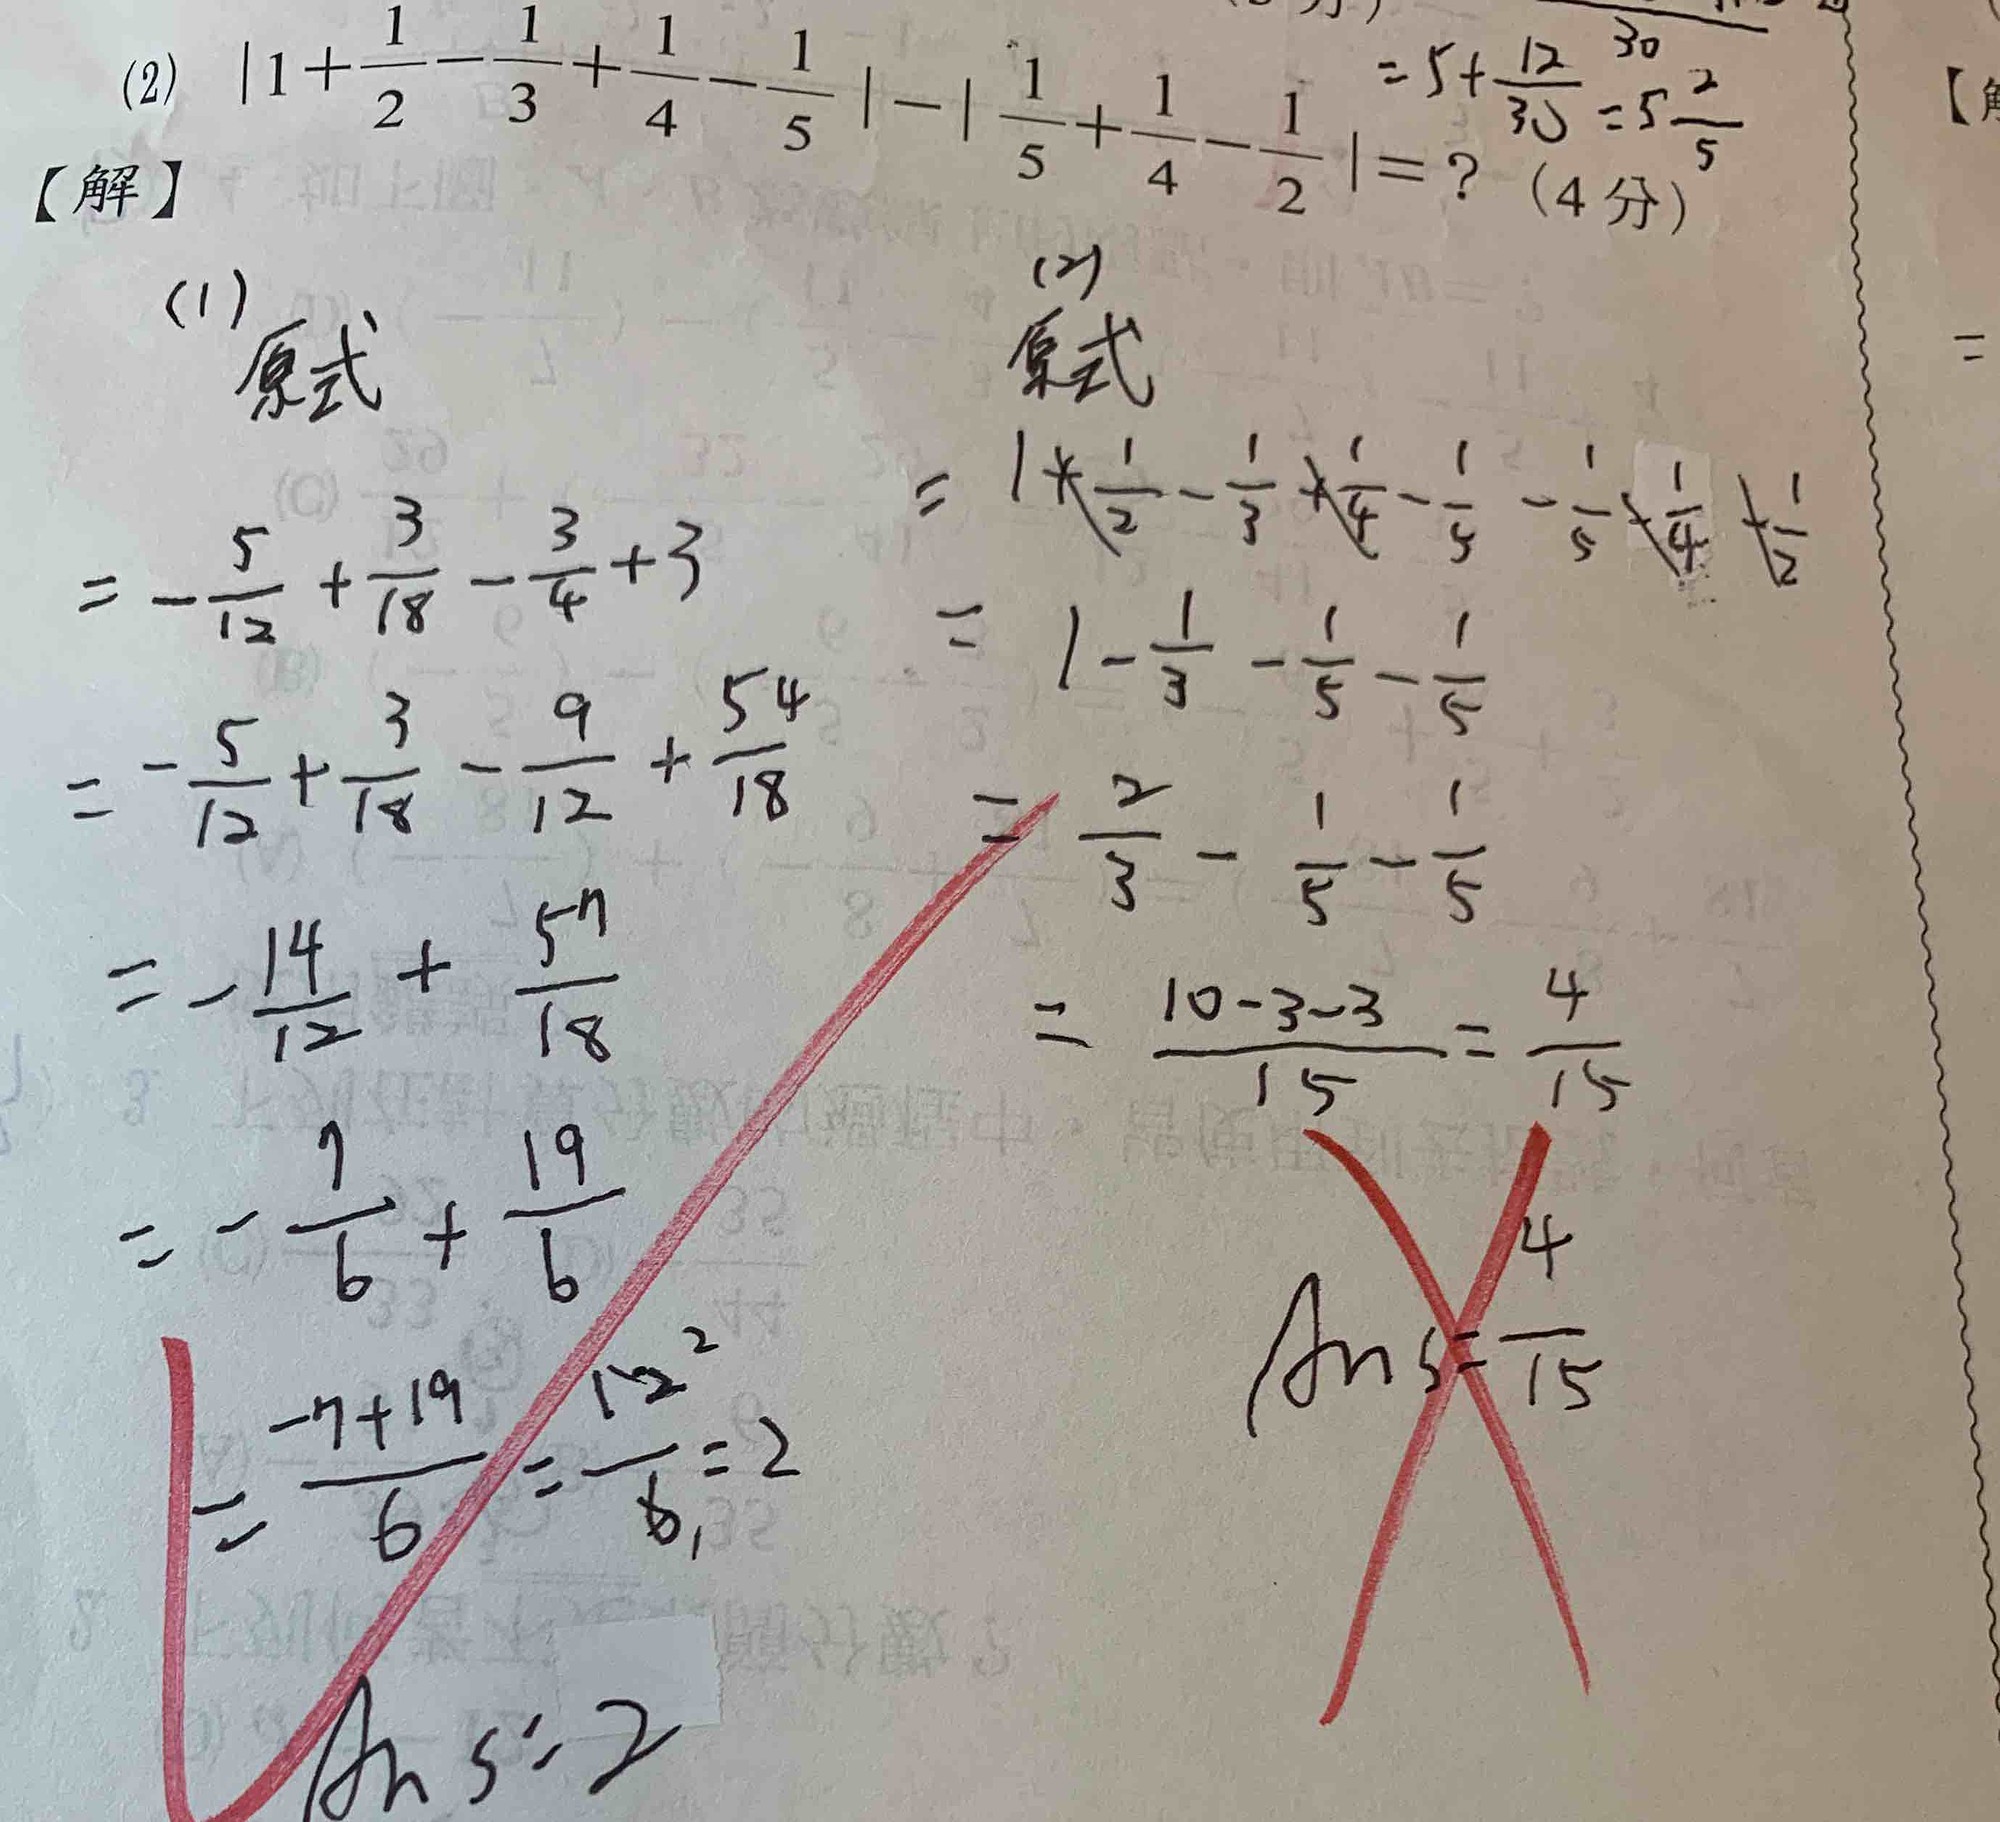 (2) |1+1/2-1/3+1/4-1/5|-|1/5+1/4-1/2|=? (4分)
=5+12/30=5 2/5
【解】
(1)
原式
=-5/12+3/18-3/4+3
=-5/12+3/18-9/12+54/18
=-14/12+57/18
=-7/6+19/6
=(-7+19)/6=12/6=2
Ans:2
(2)
原式
=1+1/2-1/3+1/4-1/5-1/5-1/4+1/2
=1-1/3-1/5-1/5
=2/3-1/5-1/5
=(10-3-3)/15=4/15
Ans=4/15